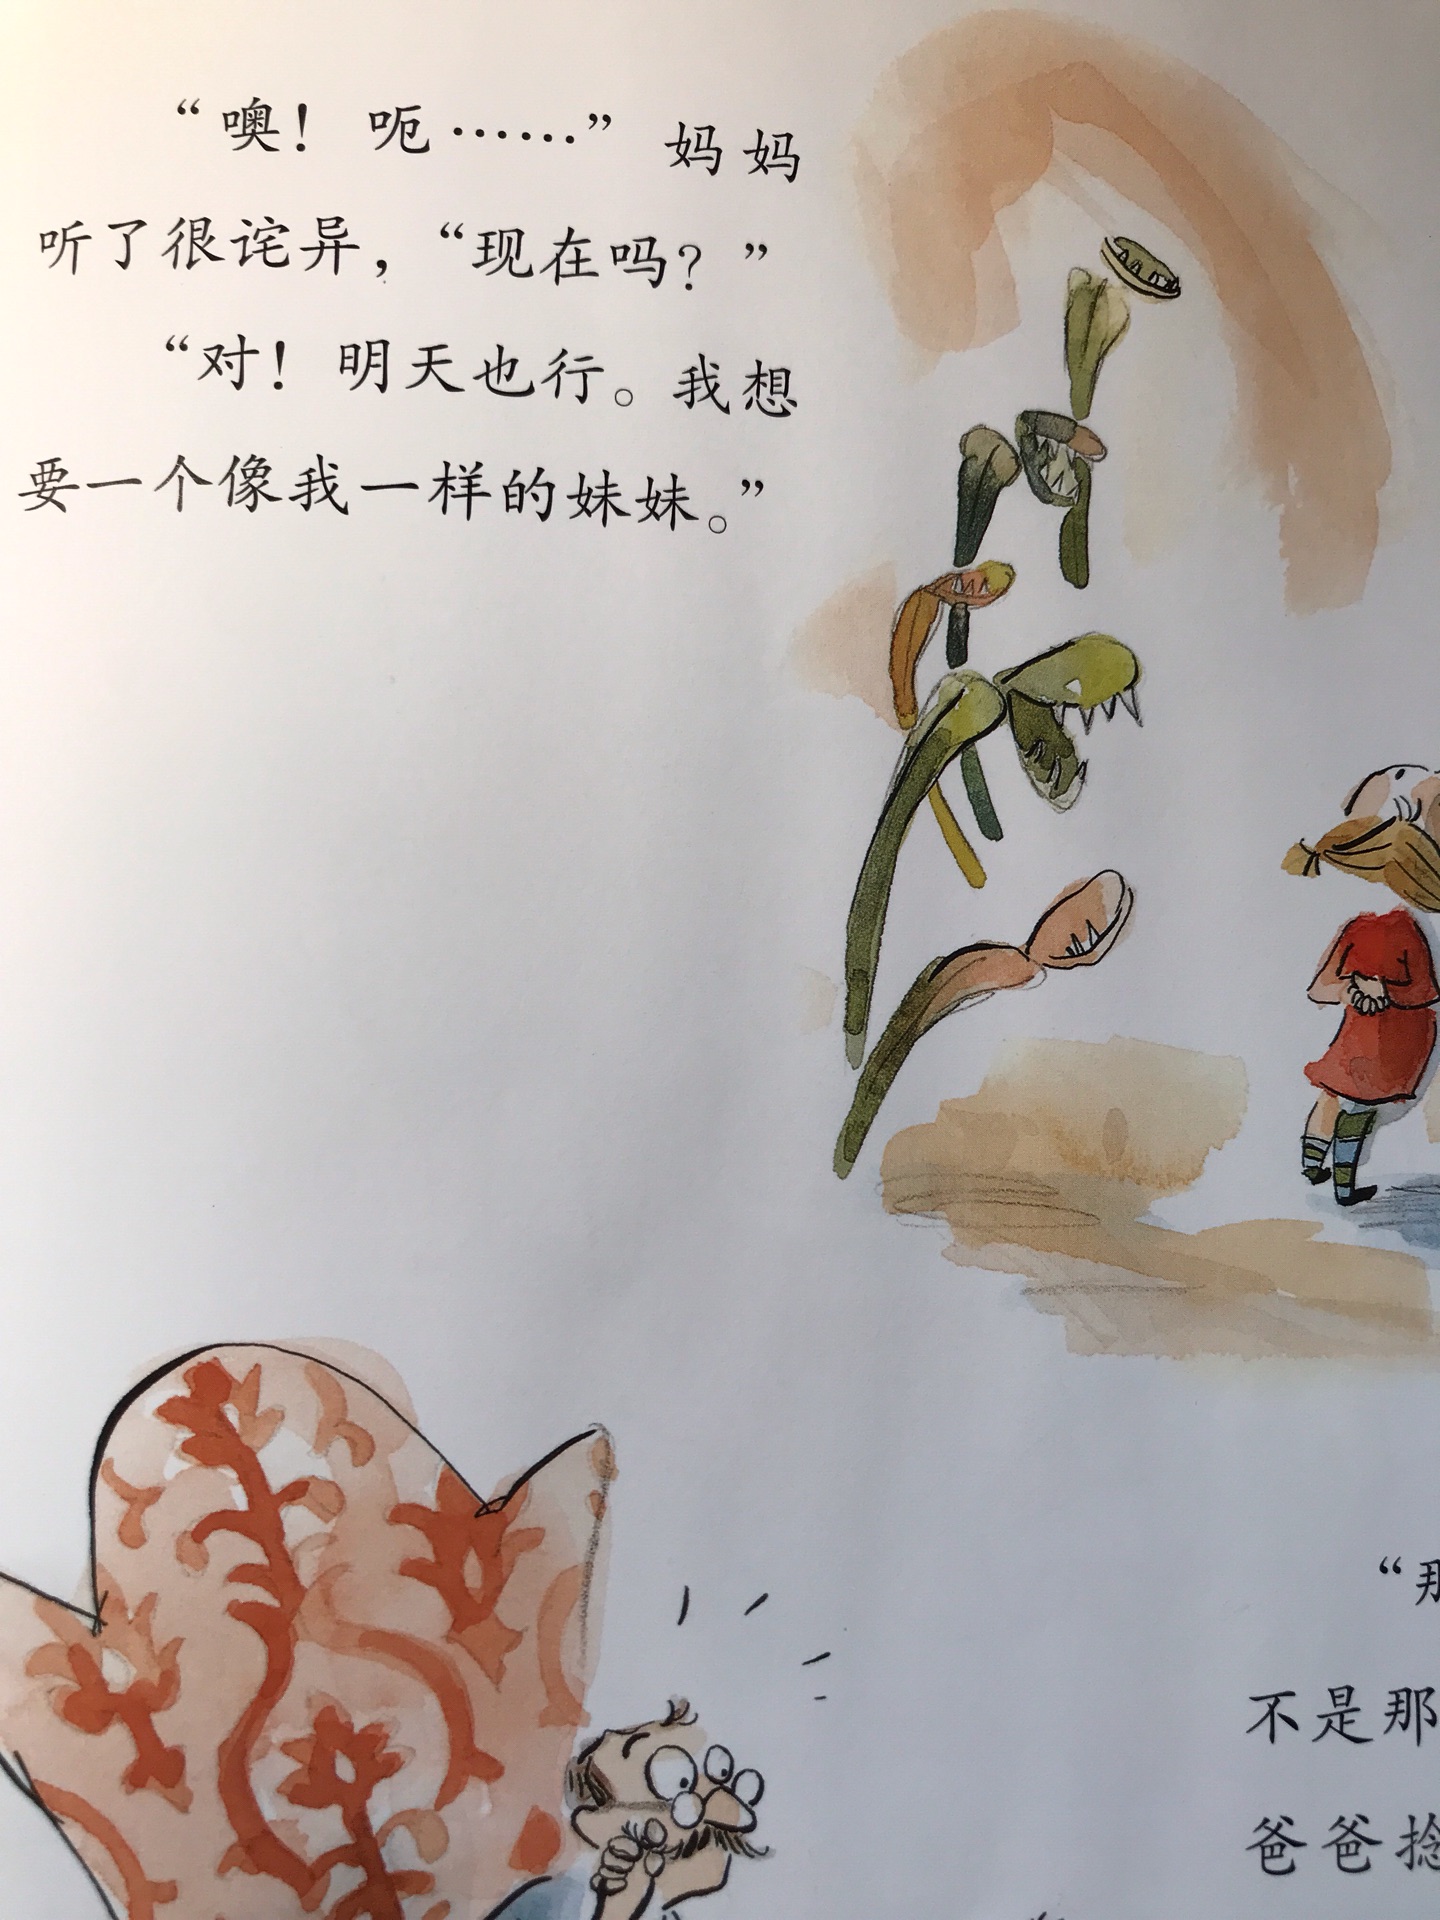 “噢！呃……”妈妈
听了很诧异，“现在吗？”
“对！明天也行。我想
要一个像我一样的妹妹。”
“那
不是那
爸爸捻